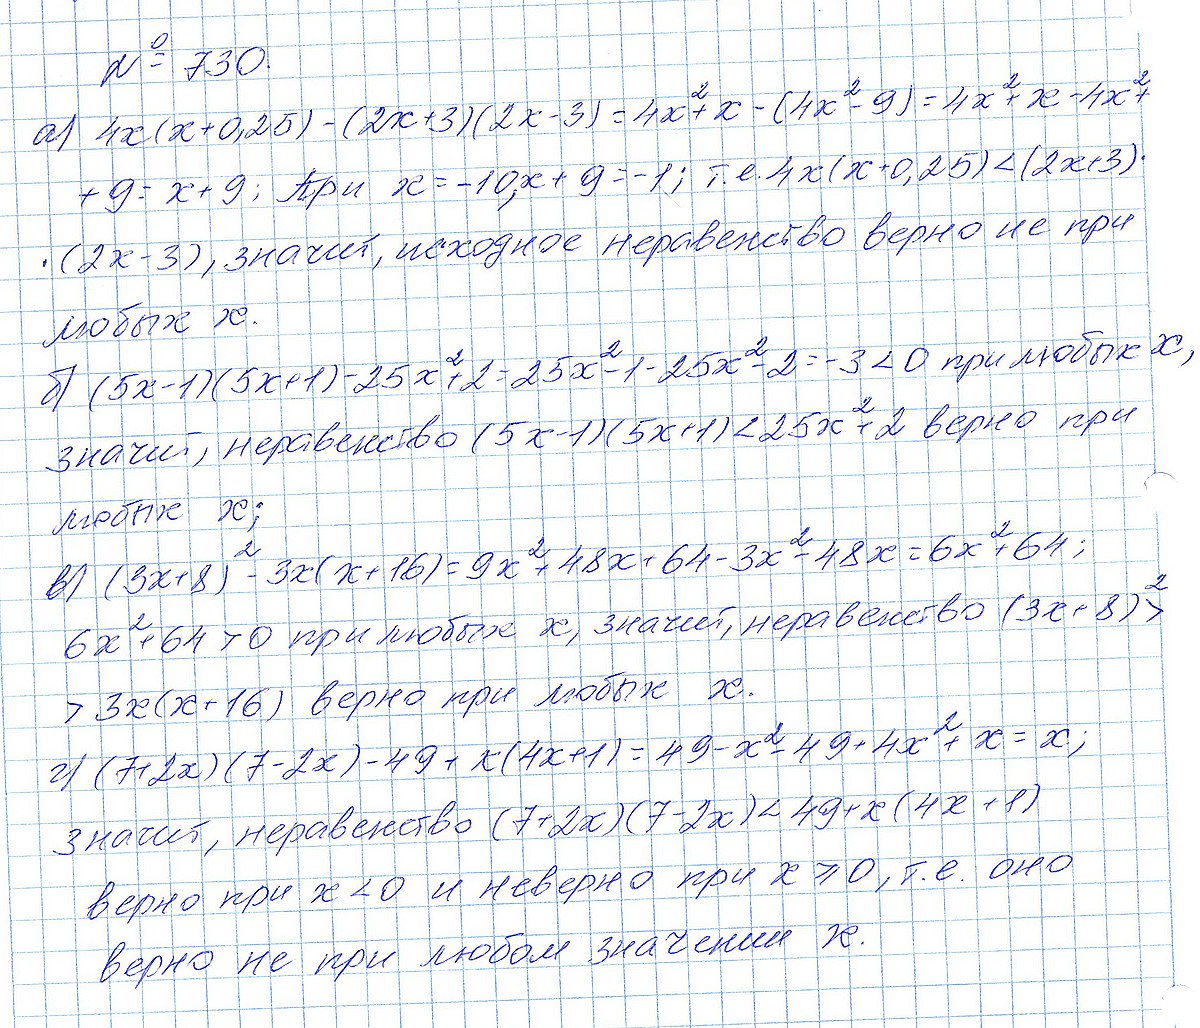 № 730.
а) 4x(x+0,25)-(2x+3)(2x-3)=4x²+x-(4x²-9)=4x²+x-4x²+
+9=x+9; При x=-10,x+9=-1; т.е.4x(x+0,25)<(2x+3)·
·(2x-3), значит, исходное неравенство верно не при
любых x.
б) (5x-1)(5x+1)-25x²+2=25x²-1-25x²-2=-3<0 при любых x,
значит, неравенство (5x-1)(5x+1)<25x²+2 верно при
любых x;
в) (3x+8)²-3x(x+16)=9x²+48x+64-3x²-48x=6x²+64;
6x²+64>0 при любых x, значит, неравенство (3x+8)²>
>3x(x+16) верно при любых x.
г) (7+2x)(7-2x)-49+x(4x+1)=49-x²-49+4x²+x=x;
значит, неравенство (7+2x)(7-2x)<49+x(4x+1)
верно при x<0 и неверно при x≥0, т.е. оно
верно не при любом значении x.